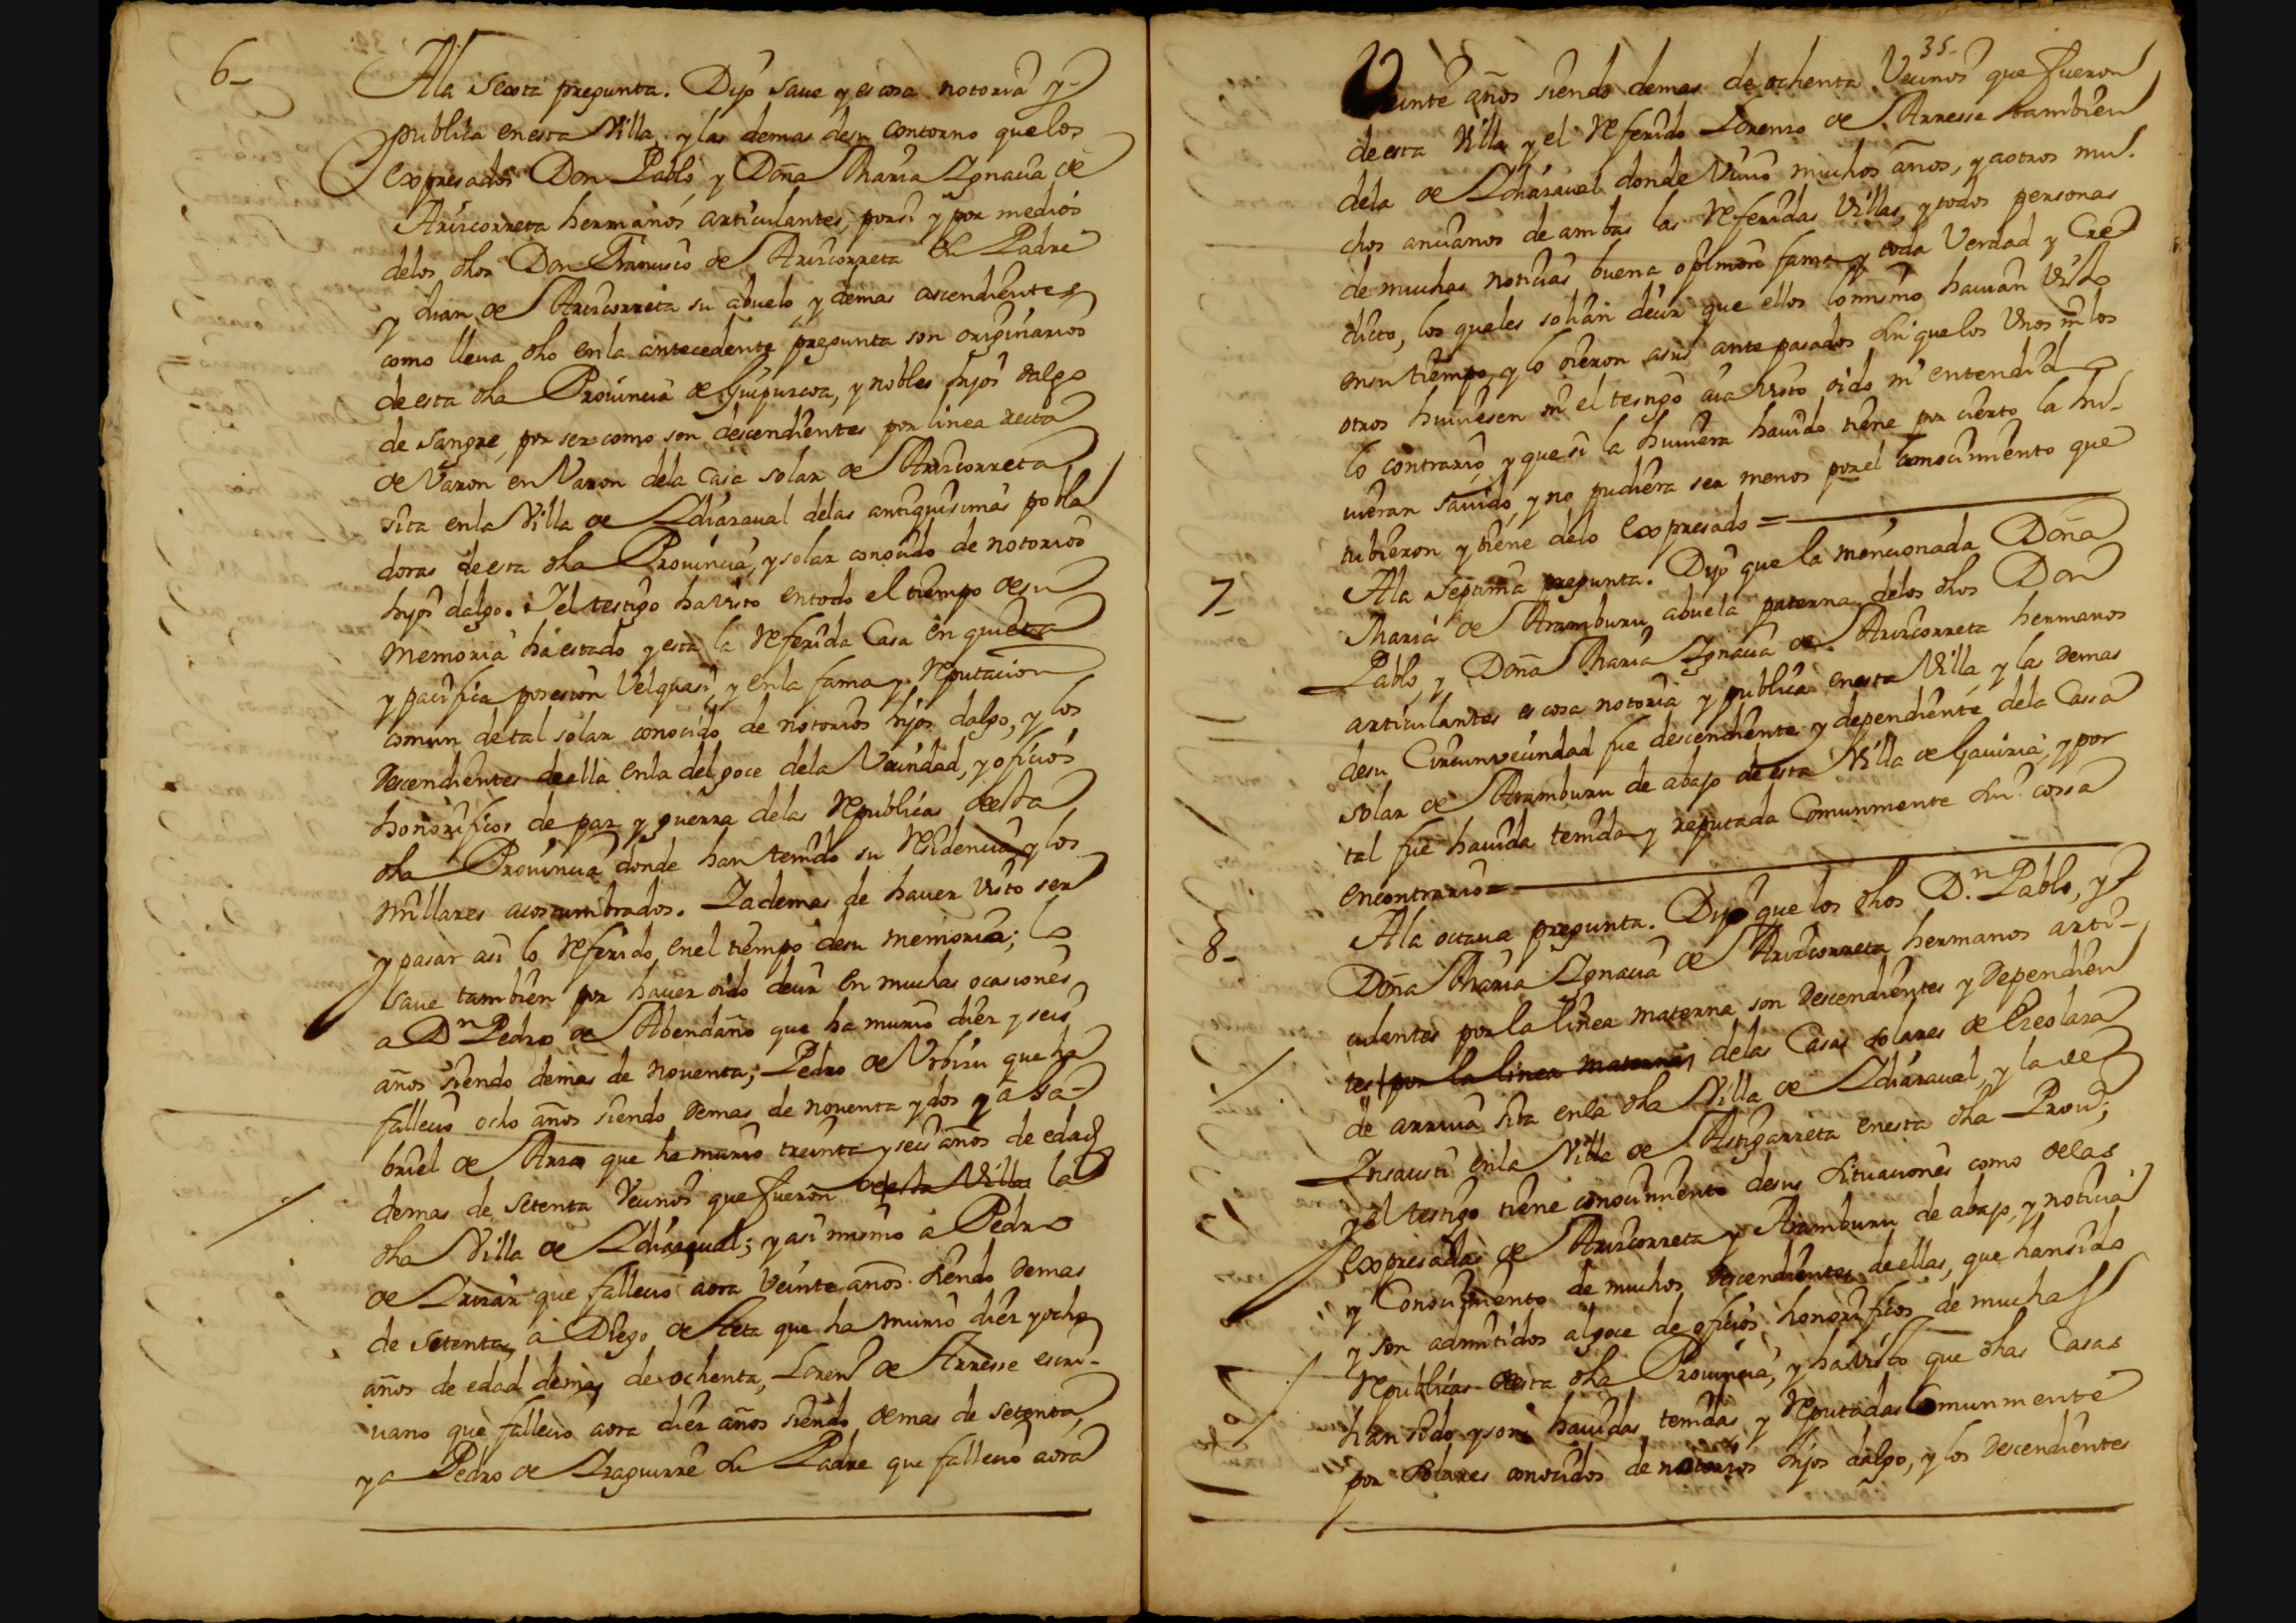 6_
A la Sexta pregunta. Dijo save y es cosa notoria y
publica en esta Villa, y las demas de su contorno que los
expresados Don Pablo, y Doña Maria Ygnacia de
Arizcorreta hermanos articulantes, por si y por medios
de los dhos Don Francisco de Arizcorreta su Padre
y Juan de Arizcorreta su abuelo y demas ascendientes
como lleua dho en la antecedente pregunta son originarios
de esta dha Prouincia de Guipuzcoa, y nobles hijos dalgo
de sangre, por ser como son descendientes por linea recta
de Varon en Varon de la Casa solar de Arizcorreta
sita en la Villa de Ydiazaual de las antiquisimas pobla
doras de esta dha Prouincia, y solar conocido de notorios
hijos dalgo. Y el testigo ha visto en todo el tiempo de su
memoria ha estado y esta la referida Casa en quieta
y pacifica posesion Vel quasi, y en la fama y reputacion
comun de tal solar conocido de notorios hijos dalgo, y los
descendientes de ella en la del goce de la Vecindad, y oficios
honorificos de paz y guerra de las republicas de esta
dha Prouincia donde han tenido su residencia y los
millares acostumbrados. Y ademas de hauer visto ser
y pasar asi lo referido, en el tiempo de su memoria; lo
saue tambien por hauer oido decir en muchas ocasiones
a Dn Pedro de Abendaño que ha murio diez y seis
años siendo demas de nouenta; Pedro de Vrbizu que ha
fallecio ocho años siendo demas de nouenta y dos y a Ga-
briel de Arza que ha murio treinta y seis años de edad
demas de setenta Vecinos que fueron de esta Villa la
dha Villa de Ydiazaual; y asi mismo a Pedro
de Yrizar que fallecio aora veinte años siendo demas
de setenta, a Diego de Aeta que ha murio diez y ocho
años de edad demas de ochenta, Lorenzo de Arresse escri-
uano que fallecio aora diez años siendo demas de setenta,
y a Pedro de Yzaguirre su Padre que fallecio aora
35
Veinte años siendo demas de ochenta Vecinos que fueron
de esta Villa y el referido Lorenzo de Arresse tambien
de la de Ydiazaual donde viuio muchos años, y a otros mu-
chos ancianos de ambas las referidas Villas, y todos personas
de muchas noticias buena opinion fama y toda Verdad y Cre
dicto, los quales solian decir que ellos lo mismo hauian visto
en su tiempo, y lo oieron a sus antepasados sin que los Vnos ni los
otros huuiesen ni el testigo aia visto oido ni entendido
lo contrario, y que si la huuiera hauido tiene por cierto la hu-
uieran sauido, y no pudiera ser menos por el conocimiento que
tubieron y tiene de lo expresado =
7_
A la Septima pregunta. Dijo que la mencionada Doña
Maria de Aramburu, abuela paterna de los dhos Don
Pablo, y Doña Maria Ygnacia de Arizcorreta hermanos
articulantes es cosa notoria y publica en esta Villa y las demas
de su Circunvecindad fue descendiente y dependiente de la Cassa
solar de Aramburu de abajo de esta Villa de Gauiria, y por
tal fue hauida tenida y reputada Comunmente sin cossa
en contrario =
8_
A la octaua pregunta. Dijo que los dhos D.n Pablo, y
Doña Maria Ygnacia de Arizcorreta hermanos arti-
culantes por la linea materna son descendientes y dependien
tes por la linea materna, de las Casas solares de Oreolaza
de arriua sita en la dha Villa de Ydiazaual, y la de
Ynsausti en la Villa de Astigarreta en esta dha Prou.a;
y el testigo tiene conocimiento de sus situaciones como de las
expresadas de Arizcorreta y Aramburu de abajo, y noticia
y Conocimiento de muchos descendientes de ellas, que han sido
y son admitidos al goce de oficios honorificos de muchas
republicas de esta dha Prouincia, y ha visto que dhas Casas
han sido y son hauidas tenidas y reputadas Comunmente
por solares conocidos de notorios hijos dalgo, y los descendientes